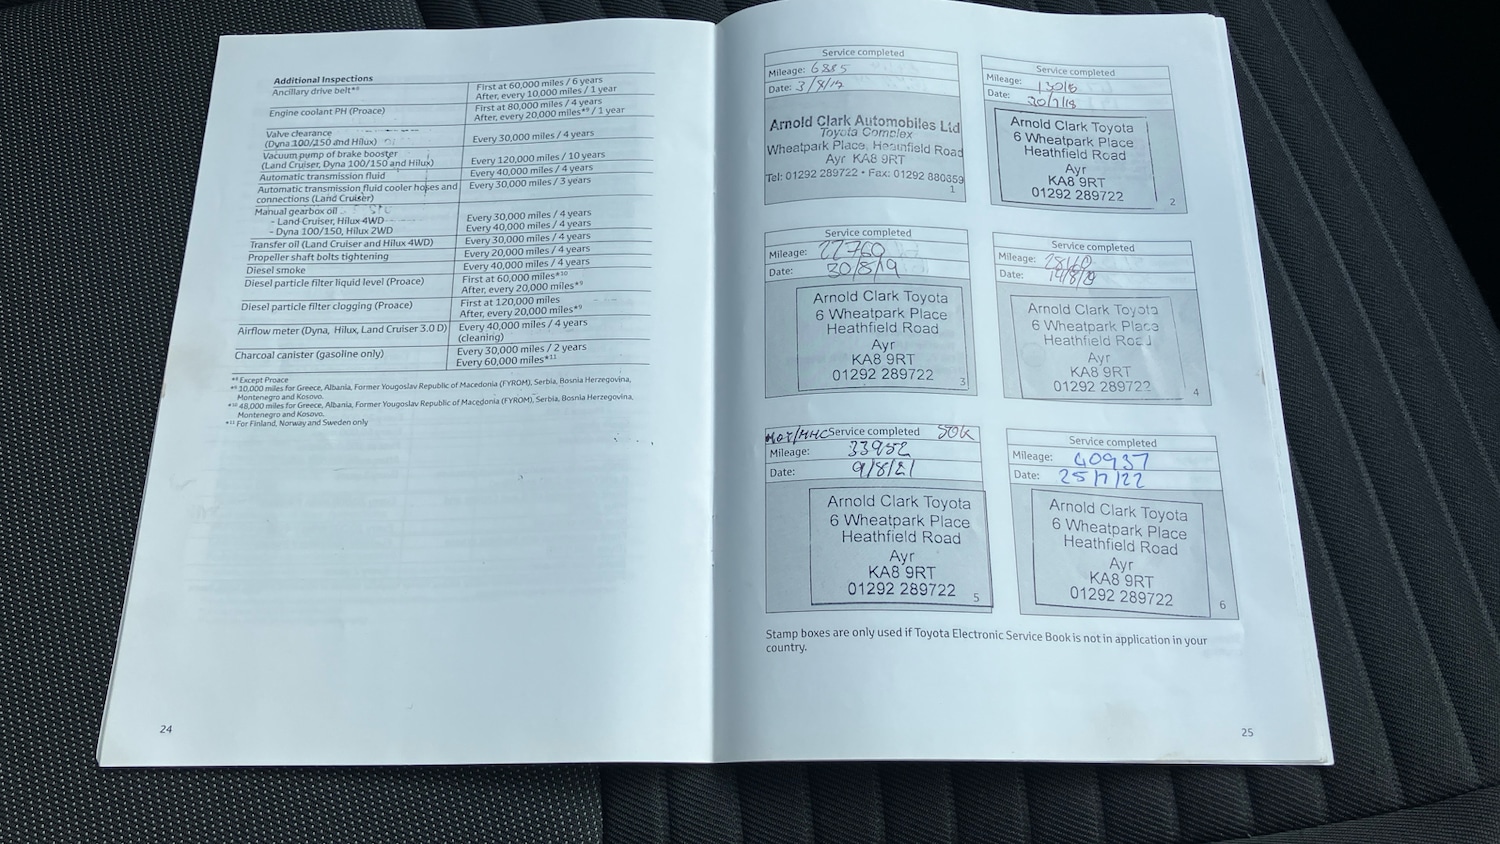 Additional Inspections
Ancillary drive belt*⁸ First at 60,000 miles / 6 years
After, every 10,000 miles / 1 year
Engine coolant PH (Proace) First at 80,000 miles / 4 years
After, every 20,000 miles*⁹ / 1 year
Valve clearance
(Dyna 100/150 and Hilux) Every 30,000 miles / 4 years
Vacuum pump of brake booster
(Land Cruiser, Dyna 100/150 and Hilux) Every 120,000 miles / 10 years
Automatic transmission fluid Every 40,000 miles / 4 years
Automatic transmission fluid cooler hoses and Every 30,000 miles / 3 years
connections (Land Cruiser)
Manual gearbox oil
- Land Cruiser, Hilux 4WD Every 30,000 miles / 4 years
- Dyna 100/150, Hilux 2WD Every 40,000 miles / 4 years
Transfer oil (Land Cruiser and Hilux 4WD) Every 30,000 miles / 4 years
Propeller shaft bolts tightening Every 20,000 miles / 4 years
Diesel smoke Every 40,000 miles / 4 years
Diesel particle filter liquid level (Proace) First at 60,000 miles*¹⁰
After, every 20,000 miles*⁹
Diesel particle filter clogging (Proace) First at 120,000 miles
After, every 20,000 miles*⁹
Airflow meter (Dyna, Hilux, Land Cruiser 3.0 D) Every 40,000 miles / 4 years
(cleaning)
Charcoal canister (gasoline only) Every 30,000 miles / 2 years
Every 60,000 miles*¹¹
*⁸ Except Proace
*⁹ 10,000 miles for Greece, Albania, Former Yougoslav Republic of Macedonia (FYROM), Serbia, Bosnia Herzegovina,
Montenegro and Kosovo.
*¹⁰ 48,000 miles for Greece, Albania, Former Yougoslav Republic of Macedonia (FYROM), Serbia, Bosnia Herzegovina,
Montenegro and Kosovo.
*¹¹ For Finland, Norway and Sweden only
24
Service completed
Mileage: 6885
Date: 3/8/17
Arnold Clark Automobiles Ltd
Toyota Complex
Wheatpark Place, Heathfield Road
Ayr KA8 9RT
Tel: 01292 289722 • Fax: 01292 880359
1
Service completed
Mileage:
Date: 30/7/18
Arnold Clark Toyota
6 Wheatpark Place
Heathfield Road
Ayr
KA8 9RT
01292 289722
2
Service completed
Mileage: 22760
Date: 30/8/19
Arnold Clark Toyota
6 Wheatpark Place
Heathfield Road
Ayr
KA8 9RT
01292 289722
3
Service completed
Mileage:
Date:
Arnold Clark Toyota
6 Wheatpark Place
Heathfield Road
Ayr
KA8 9RT
01292 289722
4
MOT/HHC Service completed 50K
Mileage: 33952
Date: 9/8/21
Arnold Clark Toyota
6 Wheatpark Place
Heathfield Road
Ayr
KA8 9RT
01292 289722
5
Service completed
Mileage: 40937
Date: 25/7/22
Arnold Clark Toyota
6 Wheatpark Place
Heathfield Road
Ayr
KA8 9RT
01292 289722
6
Stamp boxes are only used if Toyota Electronic Service Book is not in application in your
country.
25